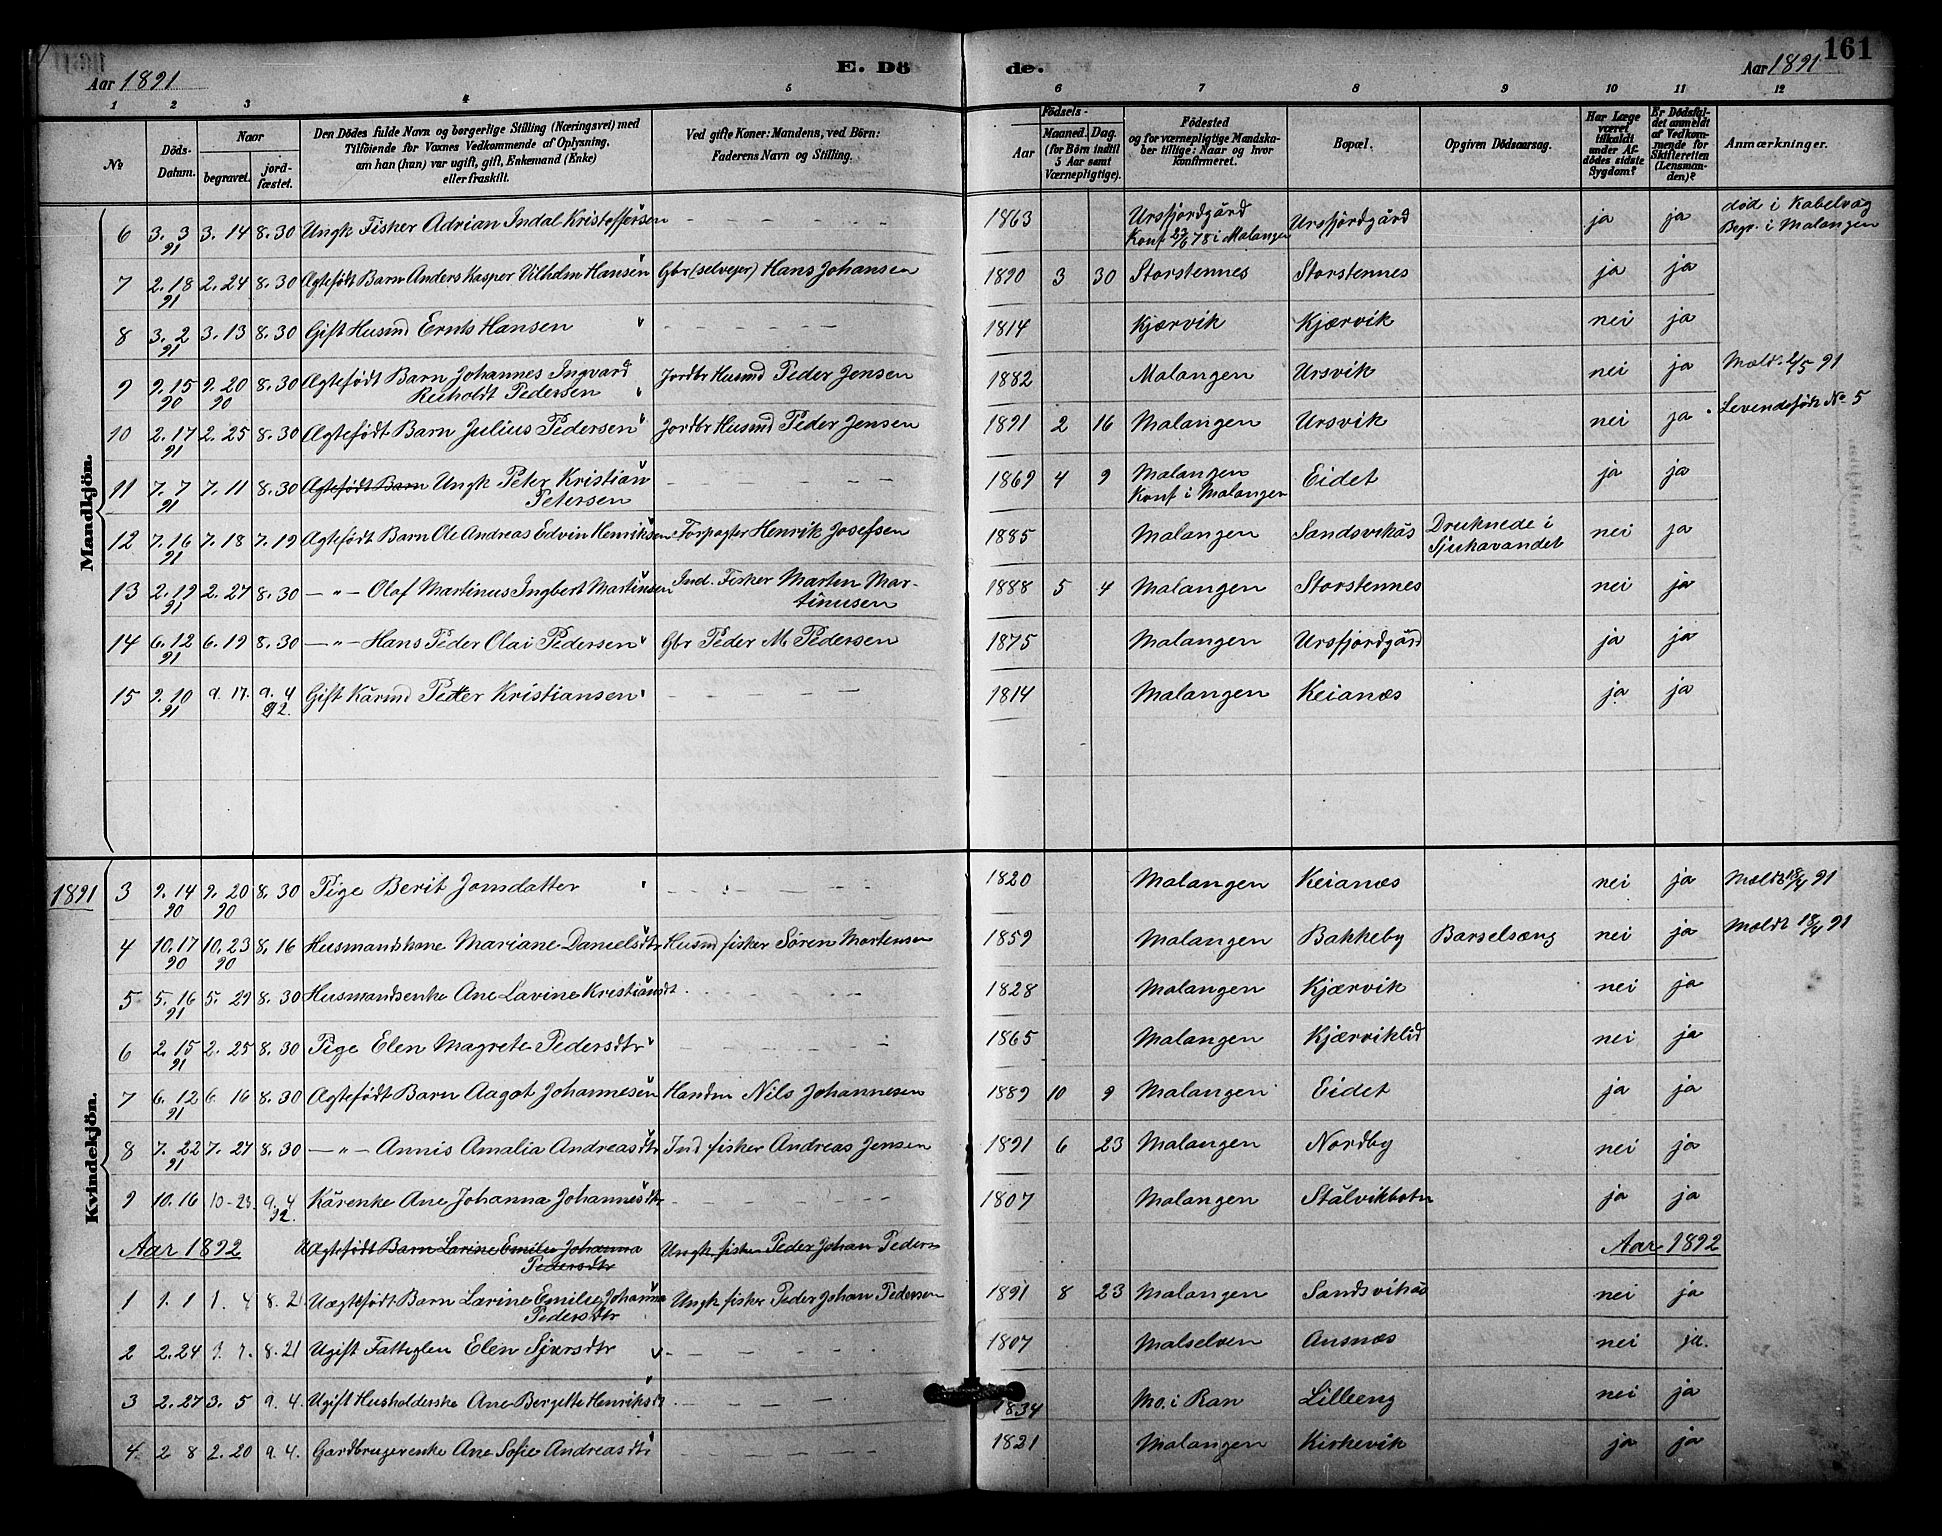 161
Aar 1891 E. Dö de. Aar 1891
1 2 3 4 5 6 7 8 9 10 11 12
№ Döds-Datum. Naar begravet. jordfæstet. Den Dödes fulde Navn og borgerlige Stilling (Næringsvei) med Tilföiende for Voxnes Vedkommende af Oplysning, om han (hun) var ugift, gift, Enkemand (Enke) eller fraskilt. Ved gifte Koner: Mandens, ved Börn: Faderens Navn og Stilling. Födsels- Aar Maaned. Dag. (for Börn indtil 5 Aar samt Værnepligtige). Födested og for værnepligtige Mandskaber tillige: Naar og hvor Konfirmeret. Bopæl. Opgiven Dödsaarsag. Har Læge været tilkaldt under Afdödes sidste Sygdom? Er Dödsfaldet anmeldt af Vedkommende for Skifteretten (Lensmanden)? Anmærkninger.
Mandkjön.
6 3. 3 91 3. 14 8. 30 Ungk Fisker Adrian Indal Kristoffersen - - - - - - 1863 Ursfjordgård Konf 23/6 78 i Malangen Ursfjordgård ja ja død i Kabelvaag Begr. i Malangen
7 2. 18 91 2. 24 8. 30 Ægtefødt Barn Anders Kasper Vilhelm Hansen Gbr (selvejer) Hans Johansen 1890 3 30 Storstennes Storstennes ja ja
8 3. 2 91 3. 13 8. 30 Gift Husmd Ernts Hansen - - - - - - 1814 Kjærvik Kjærvik nei ja
9 9. 15 90 9. 20 90 8. 30 Ægtefødt Barn Johannes Ingvard Reiholdt Pedersen Jordbr Husmd Peder Jensen 1882 Malangen Ursvik nei ja Mæld. 2/5 91
10 2. 17 91 2. 25 8. 30 Ægtefødt Barn Julius Pedersen Jordbr Husmd Peder Jensen 1891 2 16 Malangen Ursvik nei ja Levendefødt No 5
11 7. 7 91 7. 11 8. 30 Ægtefødt Barn Ungk Peter Kristian Petersen - - - - - - 1869 4 9 Malangen Konf i Malangen Eidet ja ja
12 7. 16 91 7. 18 7. 19 Ægtefødt Barn Ole Andreas Edvin Henriksen Forpagter Henrik Josefsen 1885 Malangen Sandsvikås Druknede i Sjukavandet nei ja
13 2. 19 91 2. 27 8. 30 - " - Olaf Martinus Ingbert Martinsen Ind. Fisker Martin Martinusen 1888 5 4 Malangen Storstennes nei ja
14 6. 12 91 6. 19 8. 30 - " - Hans Peder Olai Pedersen Gbr Peder M. Pedersen 1875 Malangen Ursfjordgård ja ja
15 9. 10 91 9. 17. 9. 4 92. Gift Kårmd Petter Kristiansen - - - - 1814 Malangen Keianæs ja ja
Kvindekjön.
1891 3 9. 14 90 9. 20 90 8. 30 Pige Berit Jonsdatter - - - - - 1820 Malangen Keianæs nei ja Mældt 18/4 91
4 10. 17 90 10. 23 90 8. 16 Husmandskone Mariane Danielsdtr Husmd fisker Søren Mortensen 1859 Malangen Bakkeby Barselsæng nei ja Mældt 18/4 91
5 5. 16 91 5. 29 8. 30 Husmandsenke Ane Lavine Kristiansdt - - - - 1828 Malangen Kjærvik nei ja
6 2. 15 91 2. 25 8. 30 Pige Elen Magrete Pedersdtr - - - - 1865 Malangen Kjærviklid nei ja
7 6. 12 91 6 16 8. 30 Ægtefødt Barn Aagot Johannesen Handm Nils Johannesen 1889 10 9 Malangen Eidet ja ja
8 7. 22 91 7. 27 8. 30 - " - Annis Amalia Andreasdtr Ind fisker Andreas Jensen 1891 6 23 Malangen Nordby nei ja
9 10. 16 10-23. 9. 4 92. Kårenke Ane Johanna Johannesdtr - - - - 1807 Malangen Stålvikbotn ja ja
Aar 1892 Uægtefødt Barn Larine Emilie Johanna Pedersdtr Ungk fisker Peder Johan Peders Aar 1892
1 1. 1 1. 4 8. 21 Uægtefødt Barn Larine Emilie Johanna Pedersdtr Ungk fisker Peder Johan Pedersen 1891 8 23 Malangen Sandsvikås nei ja
2 2. 24 8. 21 Ugift Fattiglem Elen Sjursdtr - - - 1807 Malselven Ansnæs nei ja.
3 2. 27 3. 5 9. 4. Ugift Husholderske Ane Bergitte Henriksdt - - - - 1834 Mo. i Ran Lilleeng nei ja
4. 2 8 2. 20 9. 4. Gardbrugerenke Ane Sofie Andreasdtr - - - - 1821 Malangen Kirkevik ja ja